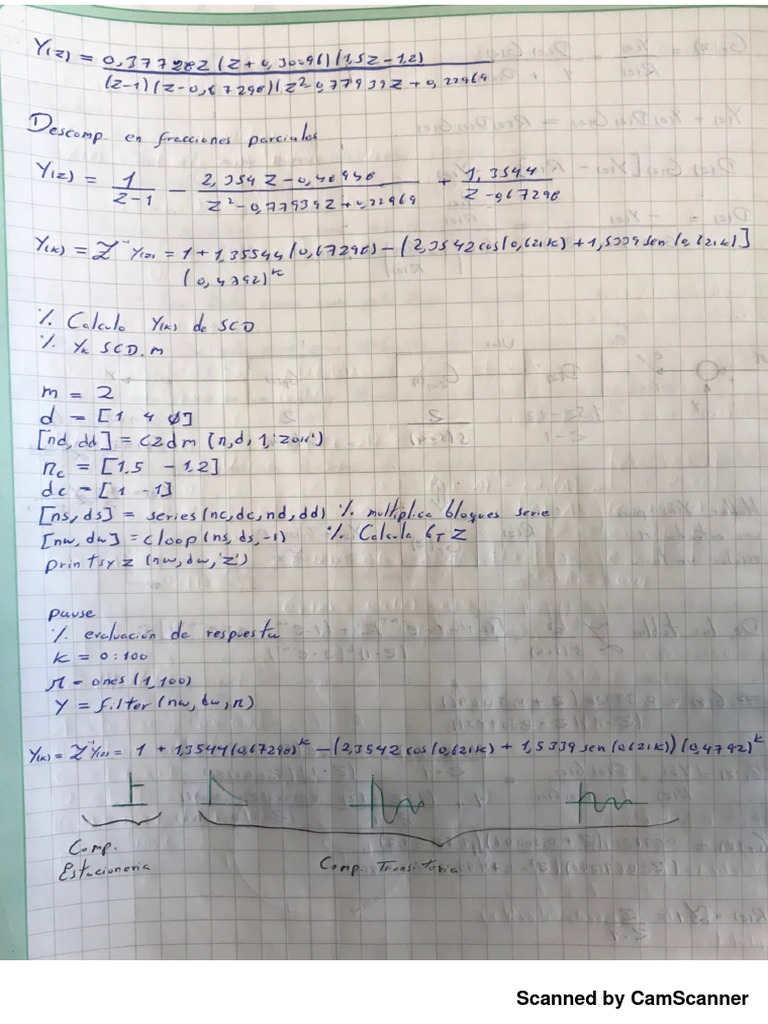 Y(z) = 0,377282 (z+0,30096)(1,5z-1,2)
(z-1)(z-0,67298)(z² 0,77939z+0,22969
Descomp. en fracciones parciales
Y(z) = 1 / z-1 - 2,354 z-0,40940 / z²-0,77939z+0,22969 + 1,3544 / z-0,67298
Y(k) = Z⁻ Y(z) = 1+1,35544(0,67298)-(2,3542 cos(0,621k)+1,5339 sen(0,621k)]
(0,4792)^k
% Calculo Y(k) de SCD
% Yk SCD.m
m = 2
d = [1 4 0]
[nd, dd] = c2dm (n,d,1,'zoh')
nc = [1.5 -1.2]
dc = [1 -1]
[ns, ds] = series(nc,dc,nd,dd) % multiplica bloques serie
[nw, dw] = cloop(ns,ds,-1) % Calcula GT Z
printsyz (nw,dw,'z')
pause
% evaluación de respuesta
k = 0:100
r = ones(1,100)
y = filter(nw,dw,r)
Y(k) = Z⁻¹Y(z) = 1 + 1,3544(0,67298)^k - (2,3542 cos(0,621k) + 1,5339 sen(0,621k))(0,4792)^k
Comp.
Estacioneria
Comp Transitoria
Scanned by CamScanner